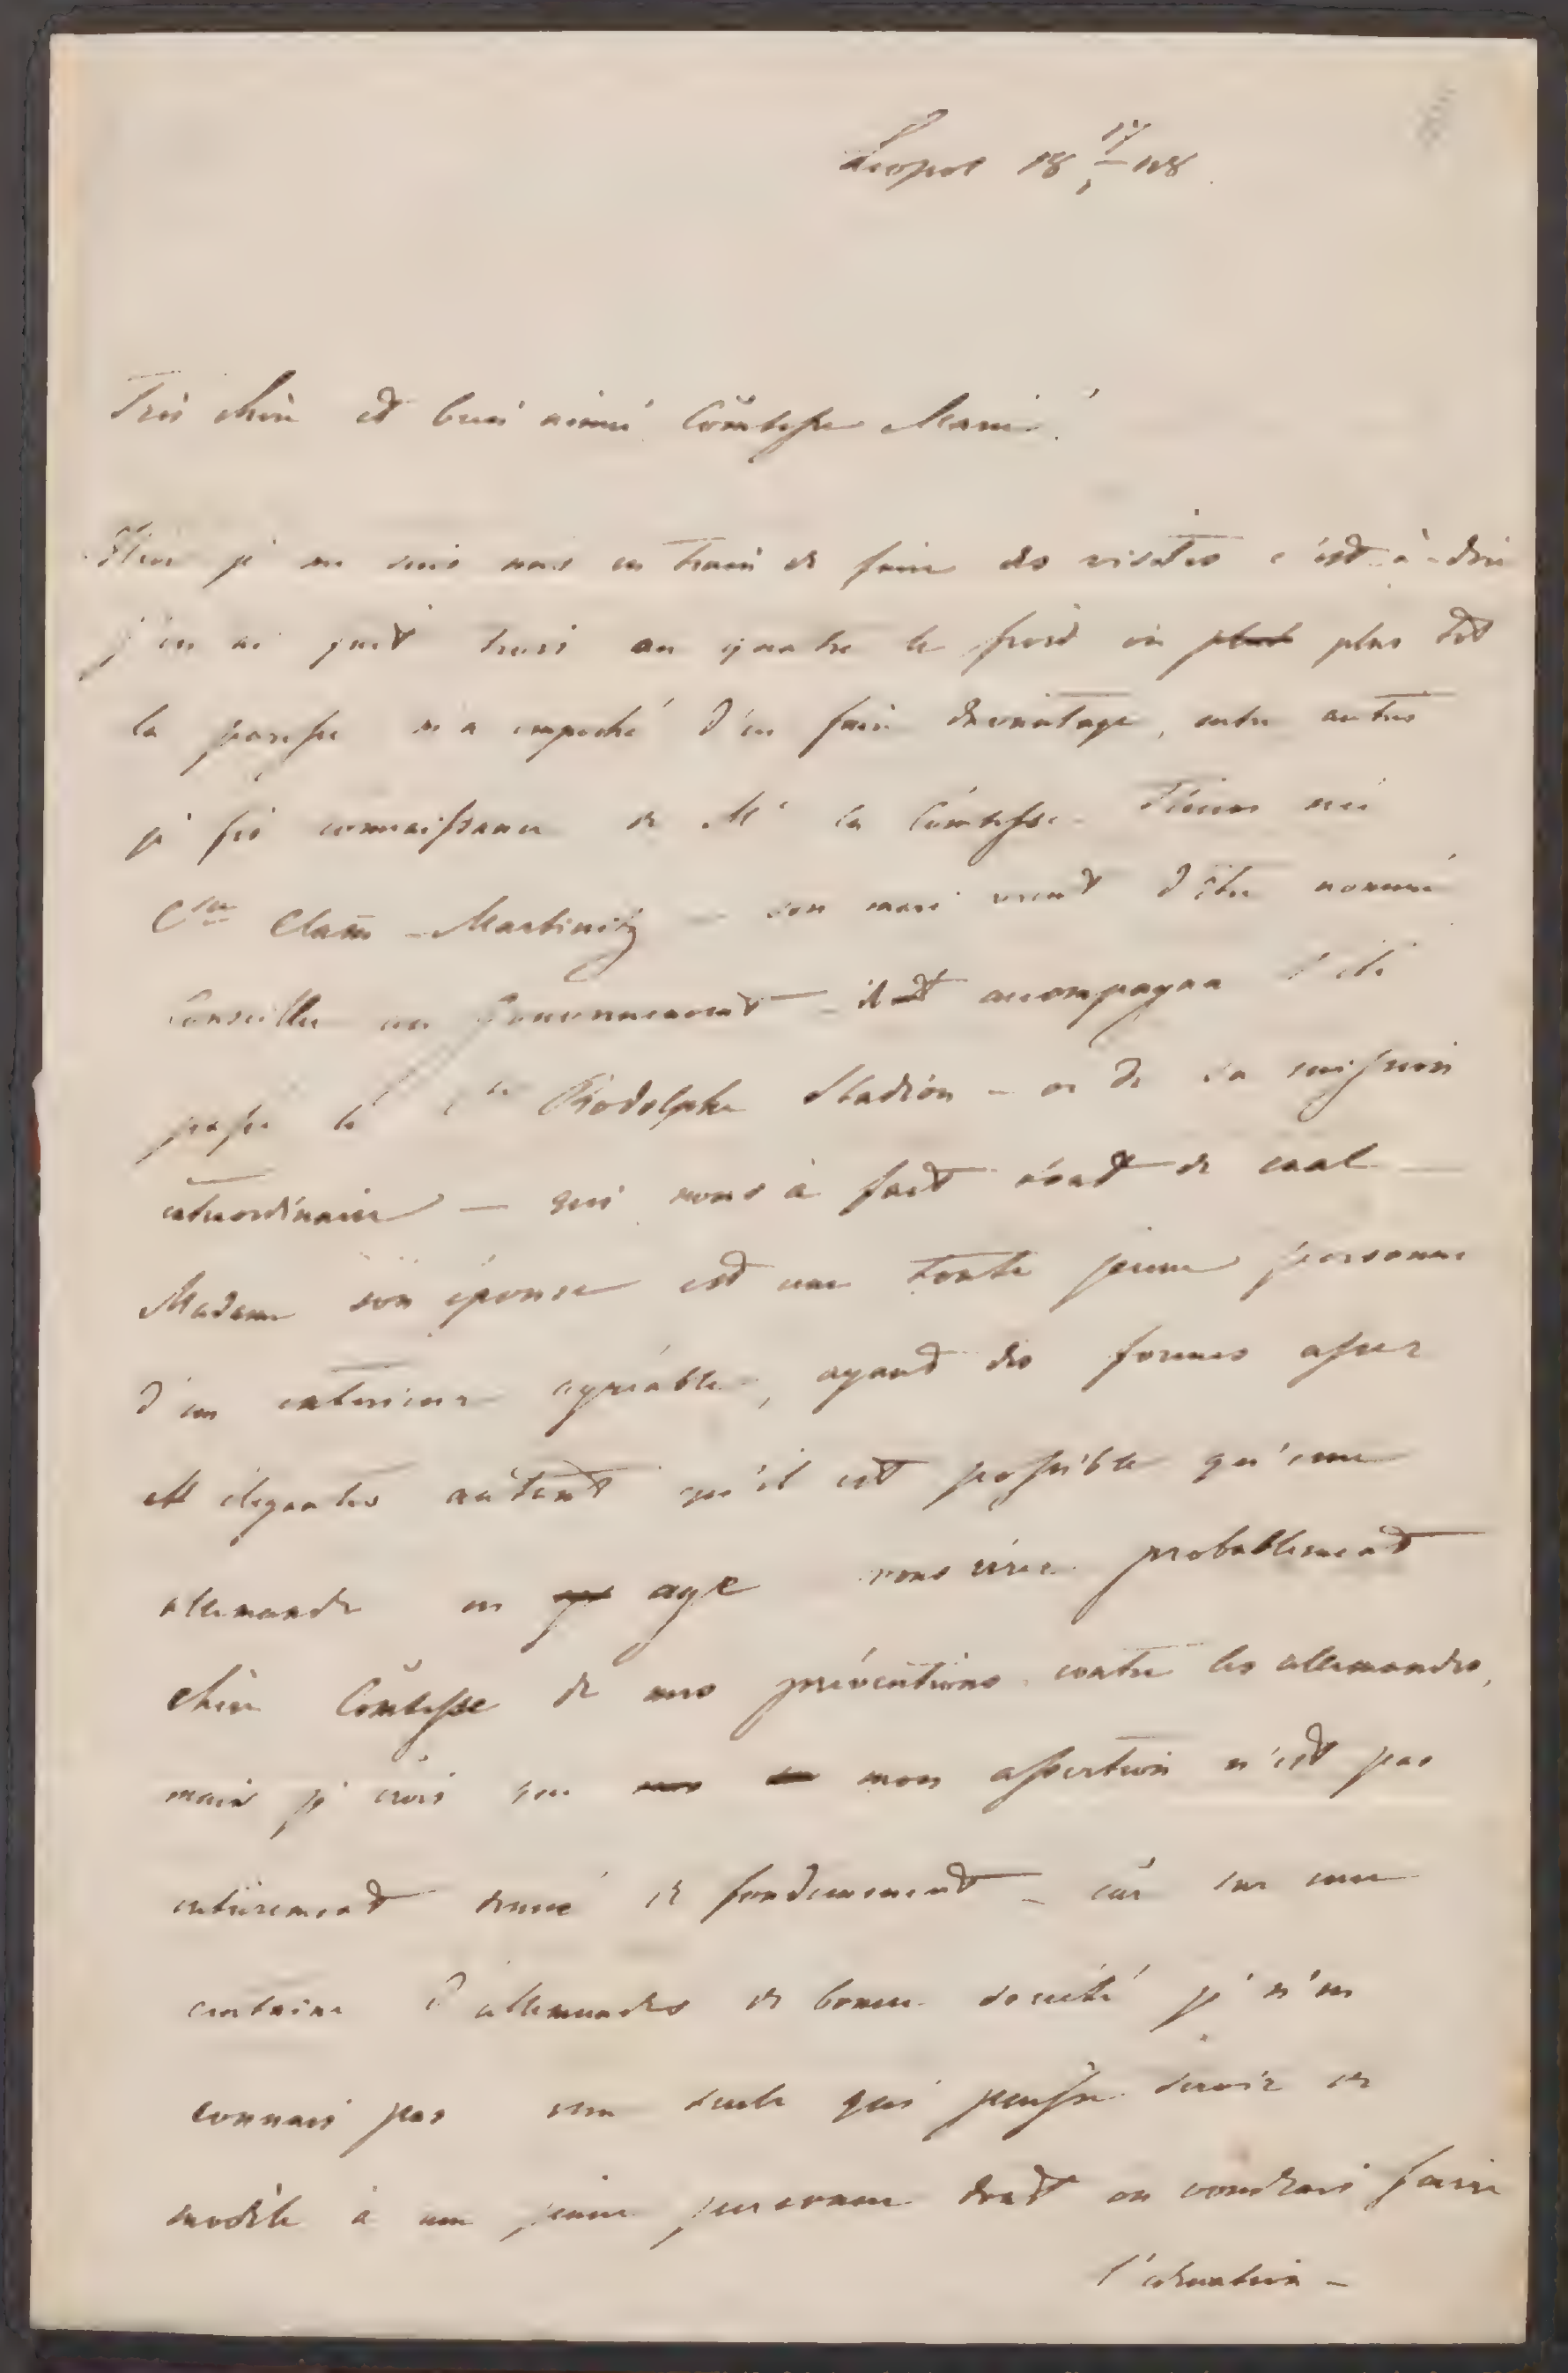 Leopol 18 17/1 48.
Très chère et bien aimée Comtesse Marie!
Hier je me suis mis en train de faire des visites c'est-à-dire
j'en ai fait trois ou quatre le froid ou plus tôt
la paresse m'a empeché d'en faire davantage, entre autres
je fis connaissance de Me la Comtesse née
Ctsse Clam-Martinitz – son mari vient d'être nommé
Conseiller au Gouvernement – il accompagna l'été
passé le Cte Rodolphe Stadion – de sa mission
extraordinaire – qui nous à fait tant de mal –
Madame son épouse est une toute jeune personne
d'un exterieur agréable, ayant des formes assez
élégantes autant qu'il est possible qu'une
allemande en aye vous probablement
chère Comtesse de mes préventions contre les allemandes,
mais je crois que mon assertion n'est pas
entièrement denué de fondement – car sur une
centaine d'allemandes de bonne societé je n'en
connais pas une seule qui puisse servir de
modèle à une jeune personne dont on voudrais faire
l'éducation –